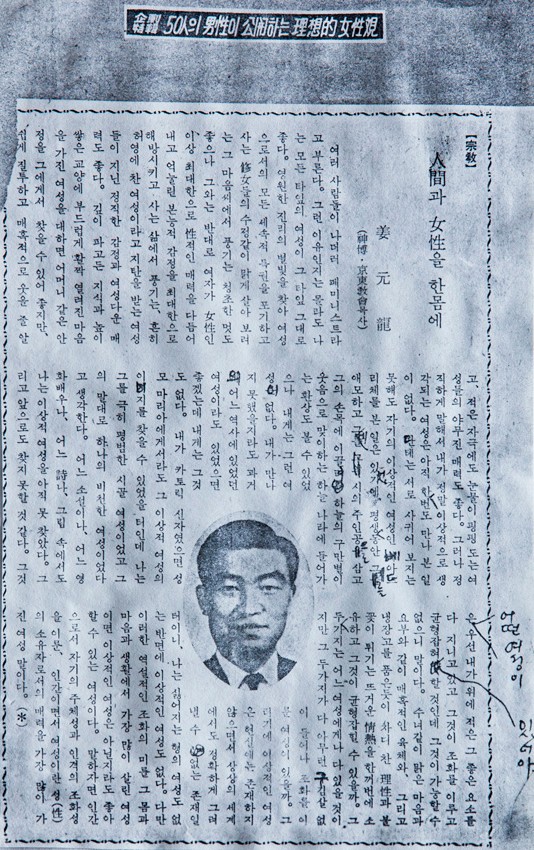 企劃特輯 50人의 男性이 公開하는 理想的 女性觀
【宗敎】
人間과 女性을 한몸에
姜 元 龍
(神博・京東敎會목사)
여러 사람들이 나더러 페미니스트라
고 부른다. 그런 이유인지는 몰라도 나
는 모든 타잎의 여성이 그 타잎 그대로
좋다. 영원한 진리의 별빛을 찾아 여성
으로서의 모든 세속적 특권을 포기하고
사는 修女들의 수정같이 맑게 살아 보려
는 그 마음씨에서 풍기는 청초한 멋도
좋으나 그와는 반대로 여자가 女性인
이상 최대한으로 性적인 매력을 다듬어
내고 억눌린 본능적 감정을 최대한으로
해방시키고 사는 삶에서 풍기는, 흔히
허영에 찬 여성이라고 지탄을 받는 여성
들이 지닌 정직한 감정과 여성다운 매
력도 좋다. 깊이 파고든 지식과 높이
쌓은 교양에 부드럽게 활짝 열려진 마음
을 가진 여성을 대하면 어머니 같은 안
정을 그에게서 찾을 수 있어 좋지만,
쉽게 질투하고 매혹적으로 웃을 줄 알
고, 적은 자극에도 눈물이 핑핑 도는 여
성들의 야무진 매력도 좋다. 그러나 정
직하게 말해서 내가 정말 이상적으로 생
각되는 여성은 아직 한번도 만나 본 일
이 없다. 단테는 서로 사귀어 보지는
못해도 자기의 이상적인 여성인 베아트
리체를 본 일은 있기에, 평생동안 그를
애모하고 그를 시의 주인공을 삼고
그의 손목에 이끌려 하늘의 구만별이
웃음으로 맞이하는 하늘 나라에 들어가
는 환상도 볼 수 있었
으나 내게는 그런 여
성이 없다. 내가 만나
지 못했을라도 과거
의 어느 역사에 있었던
여성이라도 있었으면
좋겠는데 내게는 그것
도 없다. 내가 카토릭 신자였으면 성
모 마리아에게서라도 그 이상적 여성의
이미지를 찾을 수 있었을 터인데 나는
그를 극히 평범한 시골 여성이었고 그
의 말대로 하나의 비천한 여성이었다
고 생각한다. 어느 소설이나, 어느 영
화배우나, 어느 詩나, 그림 속에서도
나는 이상적 여성을 아직 못 찾았다. 그
리고 앞으로도 찾지 못할 것 같다. 그것
은 우선 내가 위에 적은 그 좋은 요소를
다 지니고 있고 그것이 조화를 이루고
균형잡혀야 할것인데 그것이 가능할 수
없으니 말이다. 수녀같이 맑은 마음과
요부와같이 매혹적인 육체와 그리고
냉장고를 품은듯이 차디 찬 理性과 불
꽃이 튀기는 뜨거운 情熱을 한꺼번에 소
유하고 그것이 균형잡힐 수 있을까. 그
두가지는 어느 여성에게나 다 있을것이
지만 그 두가지가 다 아무런 구김살 없
이 들어나 조화를 이
룬 여성이 있을까. 그
러기에 이상적인 여성
은 현실에는 존재하지
않으면서 상상의 세계
에서도 정확하게 그려
낼 수 없는 존재일
터이니, 나는 싫어지는 형의 여성도 없
는 반면에 이상적인 여성도 없다. 다만
이러한 역설적인 조화의 미를 그 몸과
마음과 생활에서 가장 많이 살린 여성
이면 이상적인 여성은 아닐지라도 좋아
할 수 있는 여성이다. 말하자면 인간
으로서 자기의 주체성과 인격의 조화성
을 이룬, 인간이면서 여성이란 성(性)
의 소유자로서의 매력을 가장 많이 가
진 여성 말이다. (*)
어떤 여성이
있어야